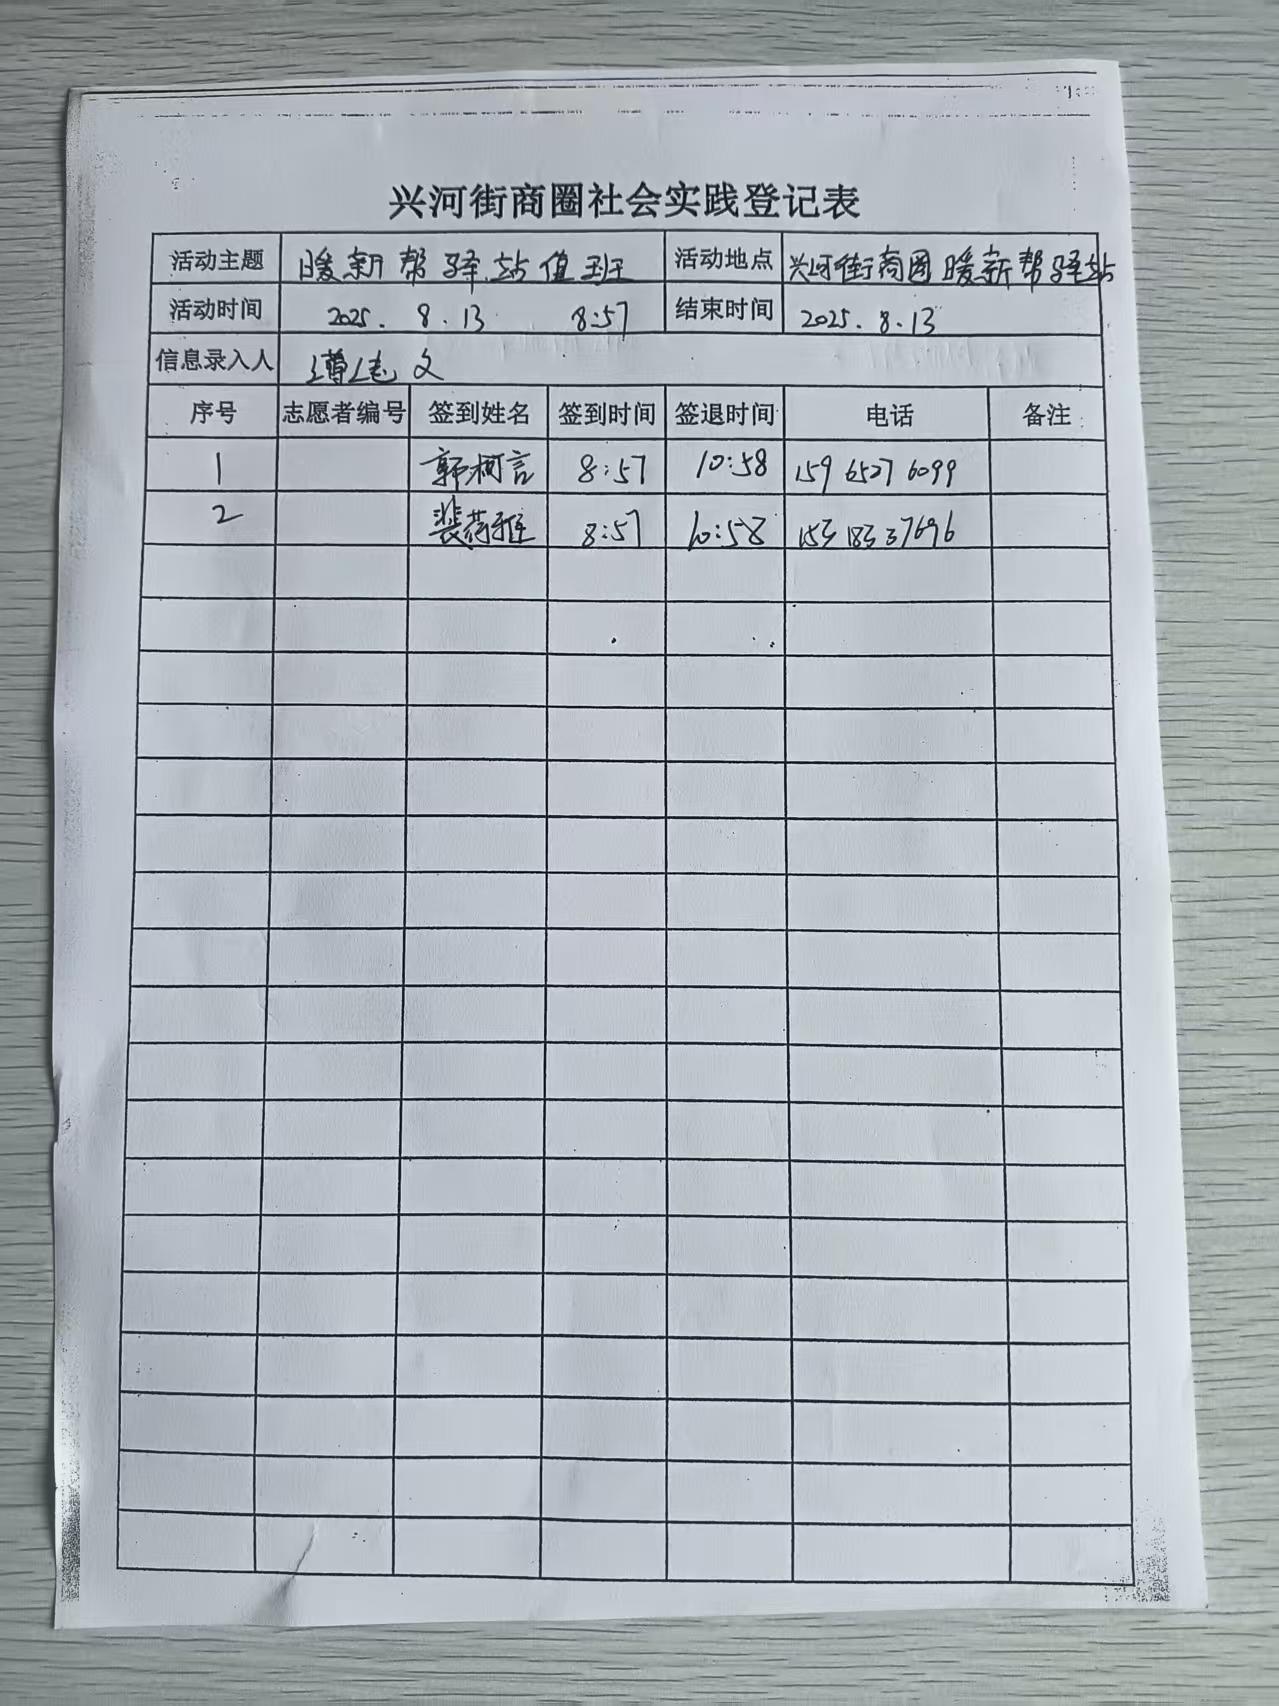 兴河街商圈社会实践登记表
活动主题 暖新帮驿站值班 活动地点 兴河街商圈暖新帮驿站
活动时间 2025.8.13 8:57 结束时间 2025.8.13
信息录入人 文
序号 志愿者编号 签到姓名 签到时间 签退时间 电话 备注
1 郭柯言 8:57 10:58 159 6527 6099
2 裴荷雅 8:57 10:58 153 183 37696